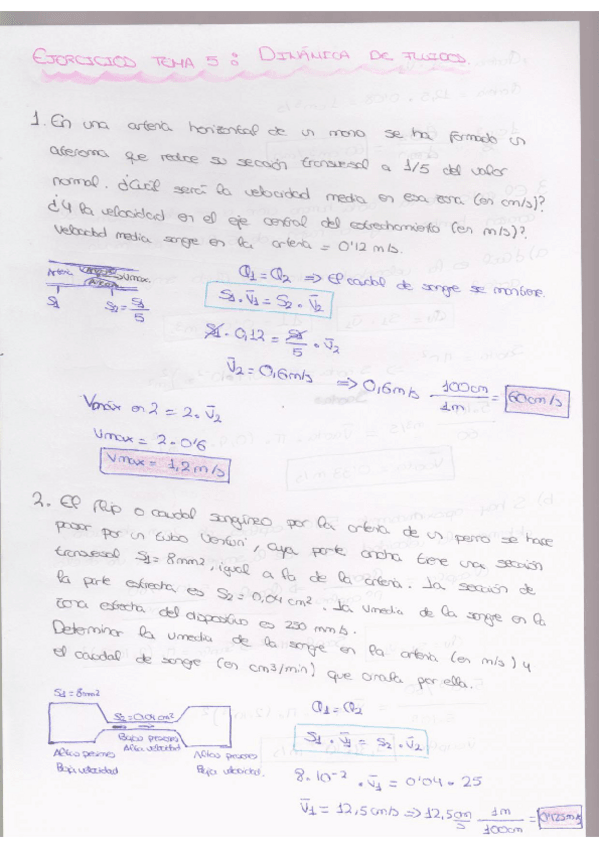 EJERCICIOS TEMA 5: DINÁMICA DE FLUIDOS.
1. En una arteria horizontal de un mono se ha formado un
ateroma que reduce su sección transversal a 1/5 del valor
normal. ¿Cuál será la velocidad media en esa zona (en cm/s)?
¿Y la velocidad en el eje central del estrechamiento (en m/s)?
Velocidad media sangre en la arteria = 0'12 m/s.
Q1 = Q2 => El caudal de sangre se mantiene.
Vmax
S1 S2 = S1/5
S1 · V̄1 = S2 · V̄2
S1 · 0,12 = S1/5 · V̄2
V̄2 = 0,6 m/s => 0,6 m/s 100cm/1m = 60cm/s
Vmáx en 2 = 2 · V̄2
Vmax = 2 · 0'6
Vmax = 1,2 m/s
2. El flujo o caudal sanguíneo por la arteria de un perro se hace
pasar por un tubo Venturi, cuya parte ancha tiene una sección
transversal S1 = 8mm², igual a la de la arteria. La sección de
la parte estrecha es S2 = 0,04 cm². La Vmedia de la sangre en la
zona estrecha del dispositivo es 250 mm/s.
Determinar la Vmedia de la sangre en la arteria (en m/s) y
el caudal de sangre (en cm3/min) que circula por ella.
S1 = 8mm²
S2 = 0,04 cm²
Q1 = Q2
S1 · V̄1 = S2 · V̄2
Baja presión
Alta velocidad
Alta presión
Baja velocidad
Alta presión
Baja velocidad.
8 · 10⁻² · V̄1 = 0'04 · 25
V̄1 = 12,5 cm/s => 12,5 cm/s 1m/100cm = 0,125 m/s